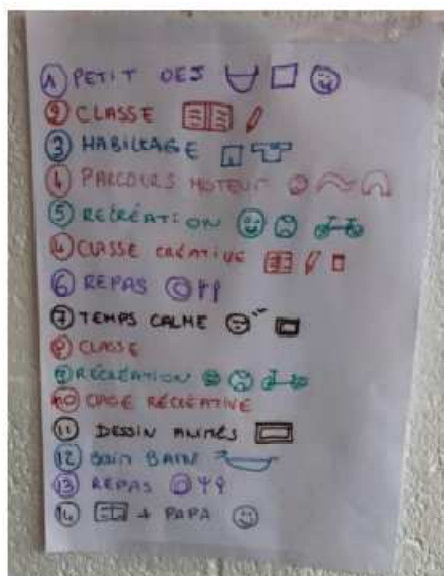 1 PETIT DEJ
2 CLASSE
3 HABILLAGE
4 PARCOURS MOTEUR
5 RECRÉATION
4 CLASSE CRÉATIVE
6 REPAS
7 TEMPS CALME
8 CLASSE
9 RÉCRÉATION
10 RÉCRÉATIVE
11 DESSIN ANIMÉS
12 BAIN
13 REPAS
14 + PAPA